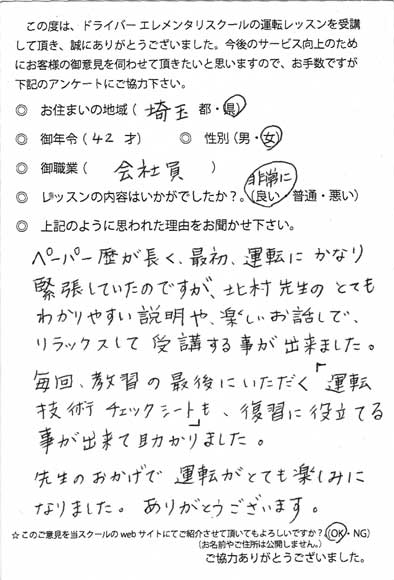 この度は、ドライバー エレメンタリスクールの運転レッスンを受講
して頂き、誠にありがとうございました。今後のサービス向上のため
にお客様の御意見を伺わせて頂きたいと思いますので、お手数ですが
下記のアンケートにご協力下さい。
◎ お住まいの地域（ 埼玉 都・県）
◎ 御年令（ 42 才） ◎ 性別（男・女）
◎ 御職業（ 会社員 ）
非常に
◎ レッスンの内容はいかがでしたか？。（良い・普通・悪い）
◎ 上記のように思われた理由をお聞かせ下さい。
ペーパー歴が長く、最初、運転にかなり
緊張していたのですが、北村先生のとても
わかりやすい説明や、楽しいお話しで、
リラックスして受講する事が出来ました。
毎回、教習の最後にいただく「運転
技術チェックシート」も、復習に役立てる
事が出来て助かりました。
先生のおかげで運転がとても楽しみに
なりました。ありがとうございます。
☆このご意見を当スクールのwebサイトにてご紹介させて頂いてもよろしいですか？（OK・NG）
（お名前やご住所は公開しません。）
ご協力ありがとうございました。